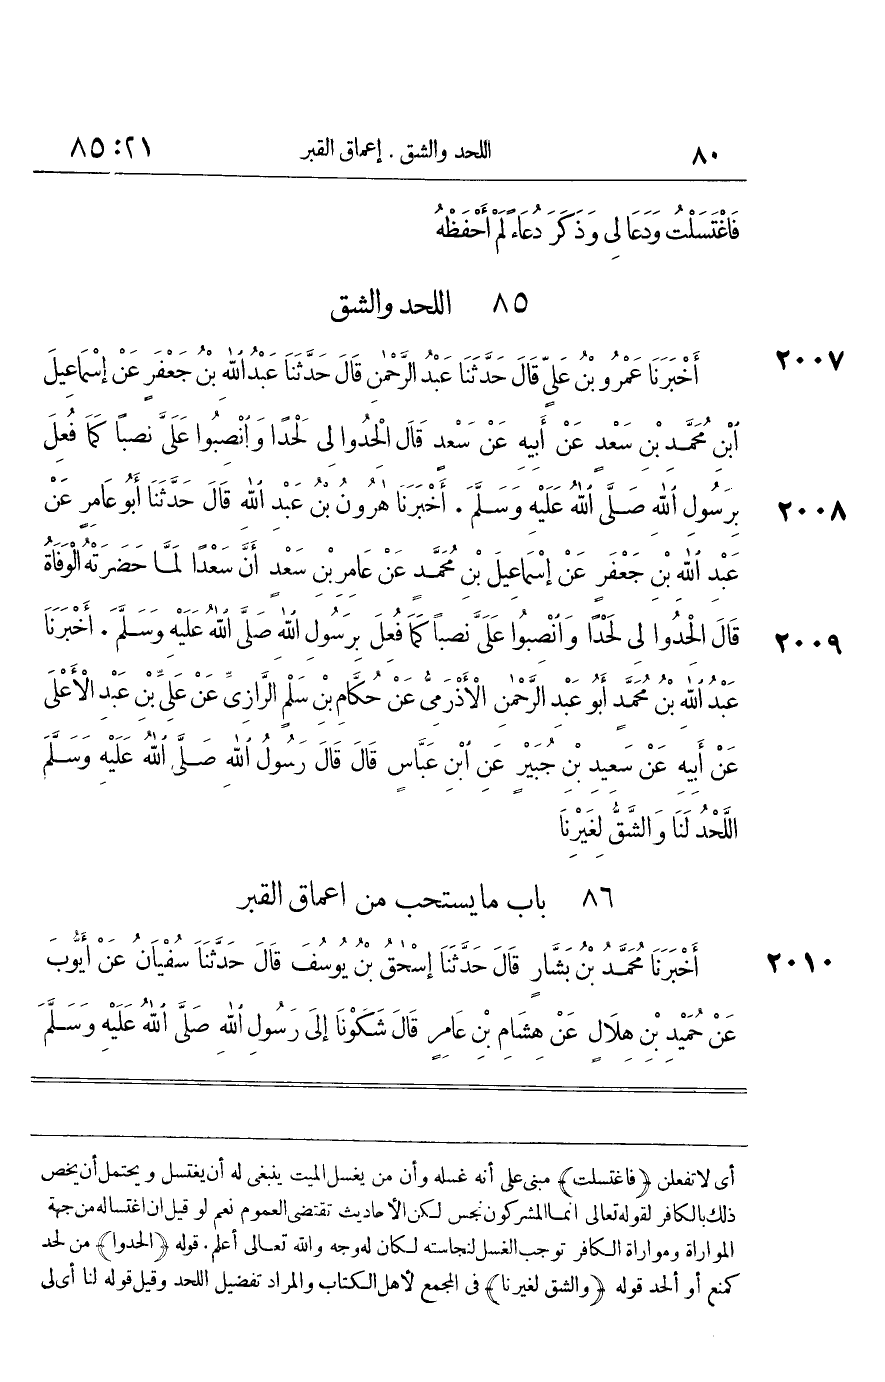 ٨٠ اللحد والشق . إعماق القبر ٢١ : ٨٥
فَاغْتَسَلْتُ وَدَعَا لِى وَذَكَرَ دُعَاءً لَمْ أَحْفَظْهُ
٨٥ اللحد والشق
٢٠٠٧ أَخْبَرَنَا عَمْرُو بْنُ عَلِىٍّ قَالَ حَدَّثَنَا عَبْدُ الرَّحْمٰنِ قَالَ حَدَّثَنَا عَبْدُ اللهِ بْنُ جَعْفَرٍ عَنْ إِسْمَاعِيلَ
ٱبْنِ مُحَمَّدِ بْنِ سَعْدٍ عَنْ أَبِيهِ عَنْ سَعْدٍ قَالَ الْحَدُوا لِى لَحْدًا وَٱنْصِبُوا عَلَىَّ نَصْبًا كَمَا فُعِلَ
٢٠٠٨ بِرَسُولِ ٱللهِ صَلَّى ٱللهُ عَلَيْهِ وَسَلَّمَ . أَخْبَرَنَا هٰرُونُ بْنُ عَبْدِ ٱللهِ قَالَ حَدَّثَنَا أَبُو عَامِرٍ عَنْ
عَبْدِ ٱللهِ بْنِ جَعْفَرٍ عَنْ إِسْمَاعِيلَ بْنِ مُحَمَّدٍ عَنْ عَامِرِ بْنِ سَعْدٍ أَنَّ سَعْدًا لَمَّا حَضَرَتْهُ الْوَفَاةُ
٢٠٠٩ قَالَ الْحَدُوا لِى لَحْدًا وَٱنْصِبُوا عَلَىَّ نَصْبًا كَمَا فُعِلَ بِرَسُولِ ٱللهِ صَلَّى ٱللهُ عَلَيْهِ وَسَلَّمَ . أَخْبَرَنَا
عَبْدُ ٱللهِ بْنُ مُحَمَّدٍ أَبُو عَبْدِ الرَّحْمٰنِ الْأَذْرَمِىُّ عَنْ حُكَّامِ بْنِ سَلْمٍ الرَّازِىِّ عَنْ عَلِىِّ بْنِ عَبْدِ الْأَعْلَى
عَنْ أَبِيهِ عَنْ سَعِيدِ بْنِ جُبَيْرٍ عَنِ ٱبْنِ عَبَّاسٍ قَالَ قَالَ رَسُولُ ٱللهِ صَلَّى ٱللهُ عَلَيْهِ وَسَلَّمَ
اللَّحْدُ لَنَا وَالشَّقُّ لِغَيْرِنَا
٨٦ باب ما يستحب من اعماق القبر
٢٠١٠ أَخْبَرَنَا مُحَمَّدُ بْنُ بَشَّارٍ قَالَ حَدَّثَنَا إِسْحٰقُ بْنُ يُوسُفَ قَالَ حَدَّثَنَا سُفْيَانُ عَنْ أَيُّوبَ
عَنْ حُمَيْدِ بْنِ هِلَالٍ عَنْ هِشَامِ بْنِ عَامِرٍ قَالَ شَكَوْنَا إِلَى رَسُولِ ٱللهِ صَلَّى ٱللهُ عَلَيْهِ وَسَلَّمَ
أى لا تفعلن ﴿فاغتسلت﴾ مبنى على أنه غسله وأن من يغسل الميت ينبغى له أن يغتسل ويحتمل أن يخص
ذلك بالكافر لقوله تعالى انما المشركون نجس لكن الأحاديث تقتضى العموم نعم لو قيل ان اغتساله من جهة
المواراة ومواراة الكافر توجب الغسل لنجاسته لكان له وجه والله تعالى أعلم . قوله ﴿الحدوا﴾ من لحد
كمنع أو ألحد قوله ﴿والشق لغيرنا﴾ فى المجمع لأهل الكتاب والمراد تفضيل اللحد وقيل قوله لنا أى لى